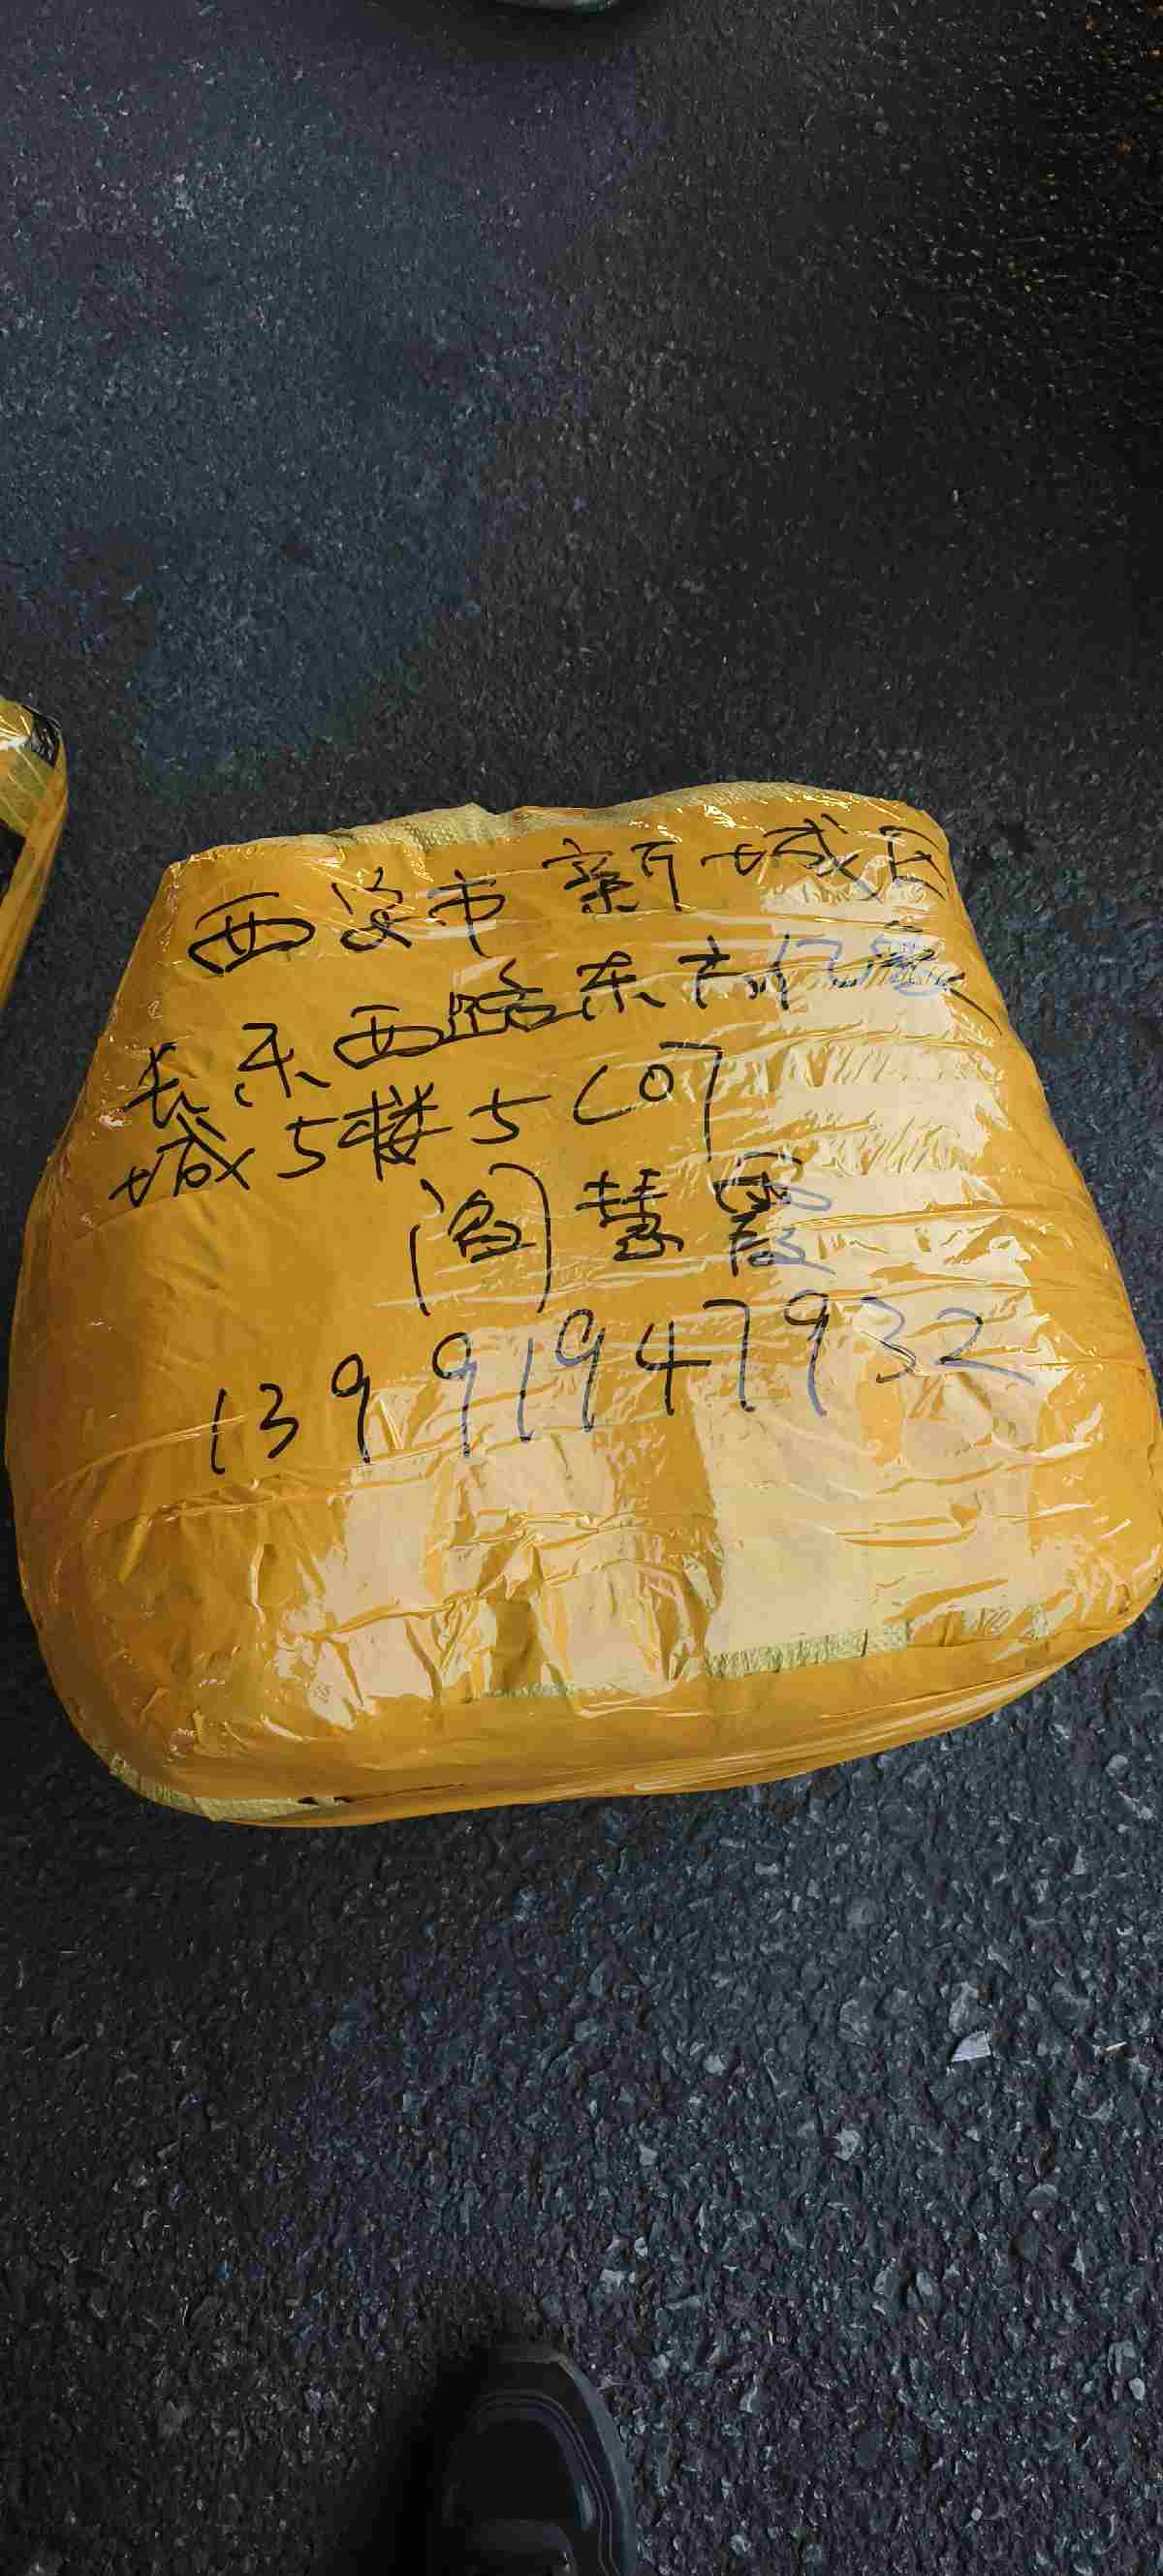 西安市新城区
长乐西路东方亿象
城5楼5C07
阎慧霞
13991947932